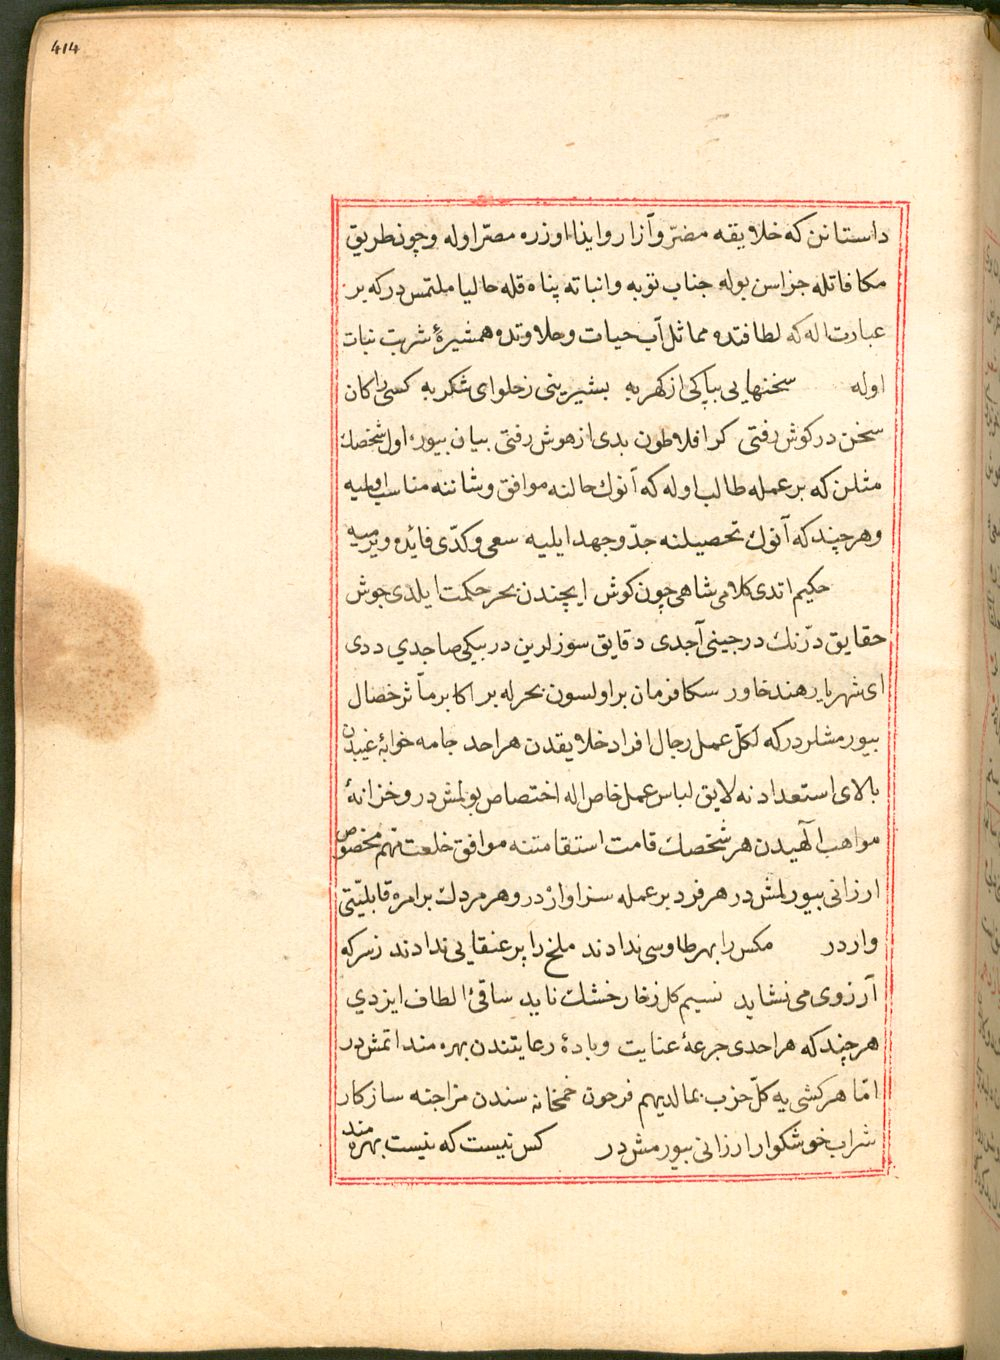 414
داستانن که خلایقه مضرّ و آزار و ایذا اوزره مصرّ اوله و چون طریق
مکافاتله جزاسن بوله جناب توبه و انباته پناه قله حالیا ملتمس درکه بر
عبارت اله که لطافتده مماثل آب حیات و حلاوتده همشیرهٔ شربت نبات
اوله سخنهایی بپاکی از کهر به بشیرینی ز حلوای شکر به کسی را کان
سخن در کوش رفتی کر افلاطون بدی از هوش رفتی بیان بیور، اول شخصک
مثلن که بر عمله طالب اوله که آنوک حالنه موافق و شاننه مناسب اولمیه
و هر چند که آنوک تحصیلنه جدّ و جهد ایلیه سعی و کدّی فائده ویرمیه
حکیم اتدی کلامی شاهی چون کوش ایچندن بحر حکمت ایلدی جوش
حقایق درّنک درجینی آجدی دقایق سوزلرین در بیکی صاجدی ددی
ای شهریار هند خاور سکا فرمان بر اولسون بحر له بر اکابر مآثر خصال
بیورمشلر درکه لکلّ عمل رجال افراد خلایقدن هر احد جامه خوابهٔ غیبدن
بالای استعدادنه لایق لباس عمل خاص اله اختصاص بولمش در و خزانهٔ
مواهب الهیدن هر شخصک قامت استقامتنه موافق خلعت مهم مخصوص
ارزانی بیورلمش در هر فرد بر عمله سزاوار در و هر مردک بر امره قابلیّتی
واردر مکس را بهر طاوسی ندادند ملخ را پر عنقایی ندادند ز سرکه
آرزوی می نشاید نسیم کل ز خار خشک ناید ساقیٔ الطاف ایزدی
هر چند که هر احدی جرعهٔ عنایت و بادهٔ رعایتندن بهره مند اتمش در
امّا هر کشی یه کلّ حزب بما لدیهم فرحون خمخانه سندن مزاجنه سازکار
شراب خوشکوار ارزانی بیورمش در کس نیست که نیست بهره مند